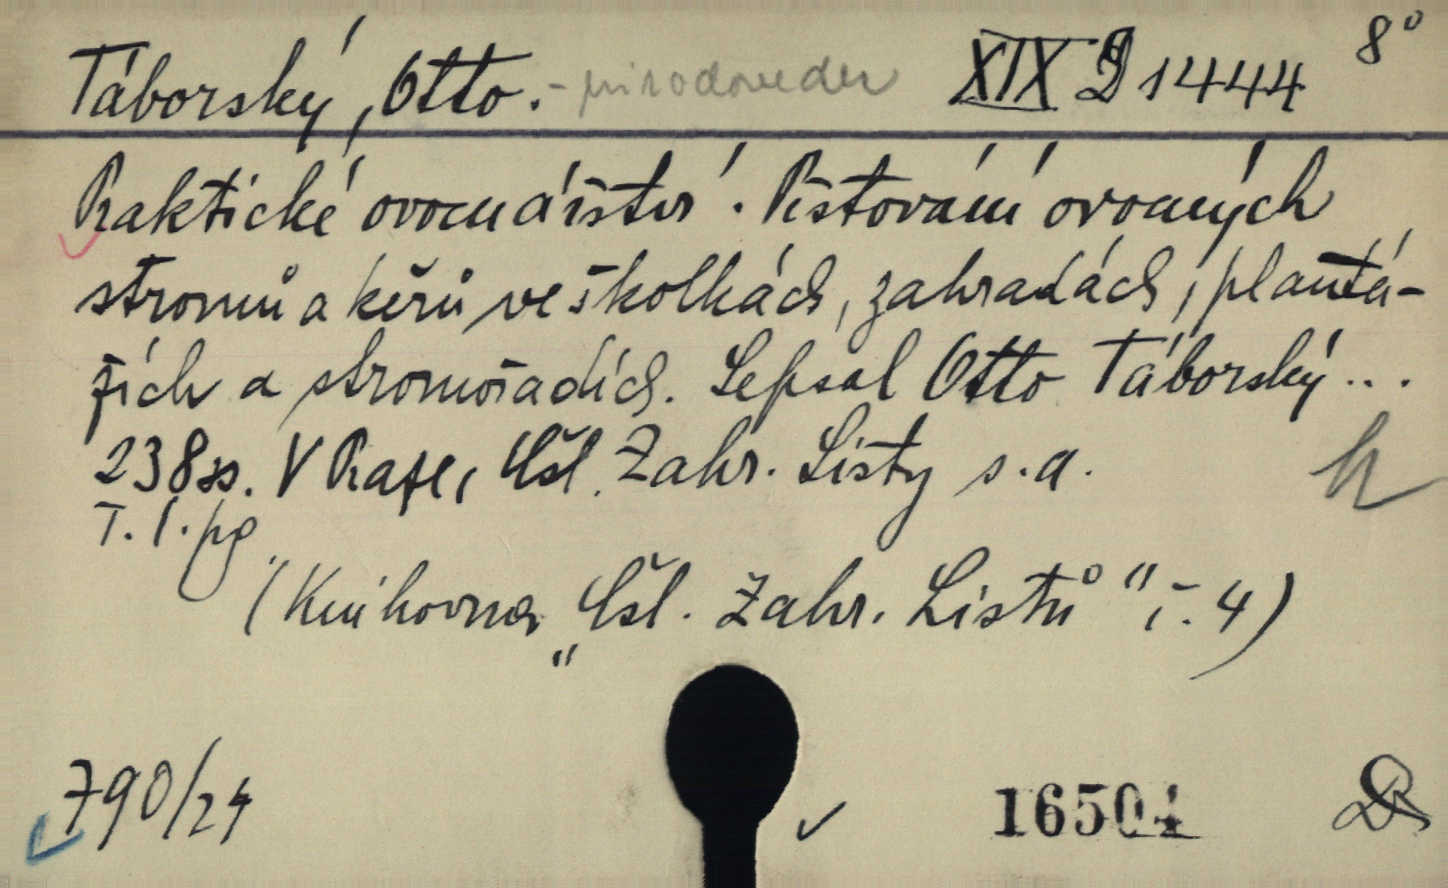 Táborský, Otto. - přírodovedec XIX D 1444 8°
Praktické ovocnářství. Pěstování ovocných
stromů a keřů ve školkách, zahradách, plantá-
žích a stromořadích. Sepsal Otto Táborský...
238 ss. V Praze, Čsl. Zahr. Listy s.a.
T. 1. pg.
(Knihovna „Čsl. Zahr. Listů" č. 4)
790/24
16504